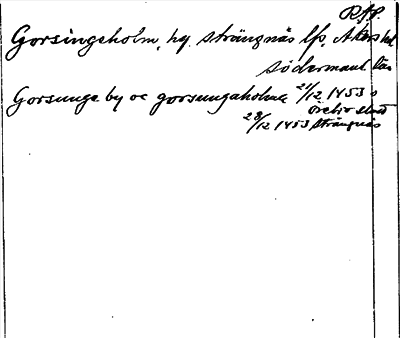 RAP.
Gorsingeholm, hg. strängnäs lfs, Åkers hd
södermanl. län
Gorsunge by oc gorsungaholm 21/12 1453
örebro
28/12 1453 strängnäs